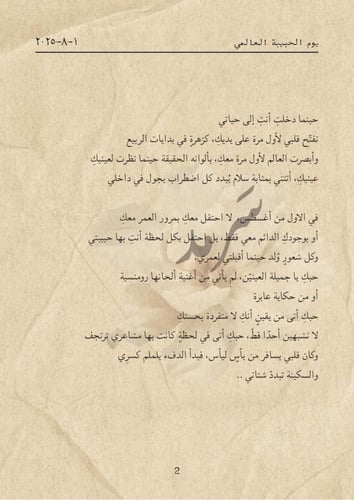 يوم الحبيبة العالمي
١-٨-٢٠٢٥
حينما دخلتِ أنتِ إلى حياتي
تفتّح قلبي لأول مرة على يديكِ، كزهرةٍ في بدايات الربيع
وأبصرت العالم لأول مرة معكِ، بألوانه الحقيقة حينما نظرت لعينيكِ
عينيكِ، أتتني بمثابة سلام يُبدد كل اضطراب يجول في داخلي
في الاول من أغسطس، لا احتفل معكِ بمرور العمر معكِ
أو بوجودكِ الدائم معي فقط، بل احتفل بكل لحظة أنتِ بها حبيبتي
وكل شعورٍ وُلد حينما أقبلتي لعمري،
حبكِ يا جميلة العينيْن، لم يأتي من أغنية ألحانها رومنسية
أو من حكاية عابرة
حبكِ أتى من يقينٍ أنكِ لا منفردة بحسنكِ
لا تشبهين أحدًا قطّ، حبكِ أتى في لحظةٍ كانت بها مشاعري ترتجف
وكان قلبي يسافر من يأسٍ ليأس، فبدأ الدفء يلملم كسري
والسكينة تبددّ شتاتي ..
سَرمد
2